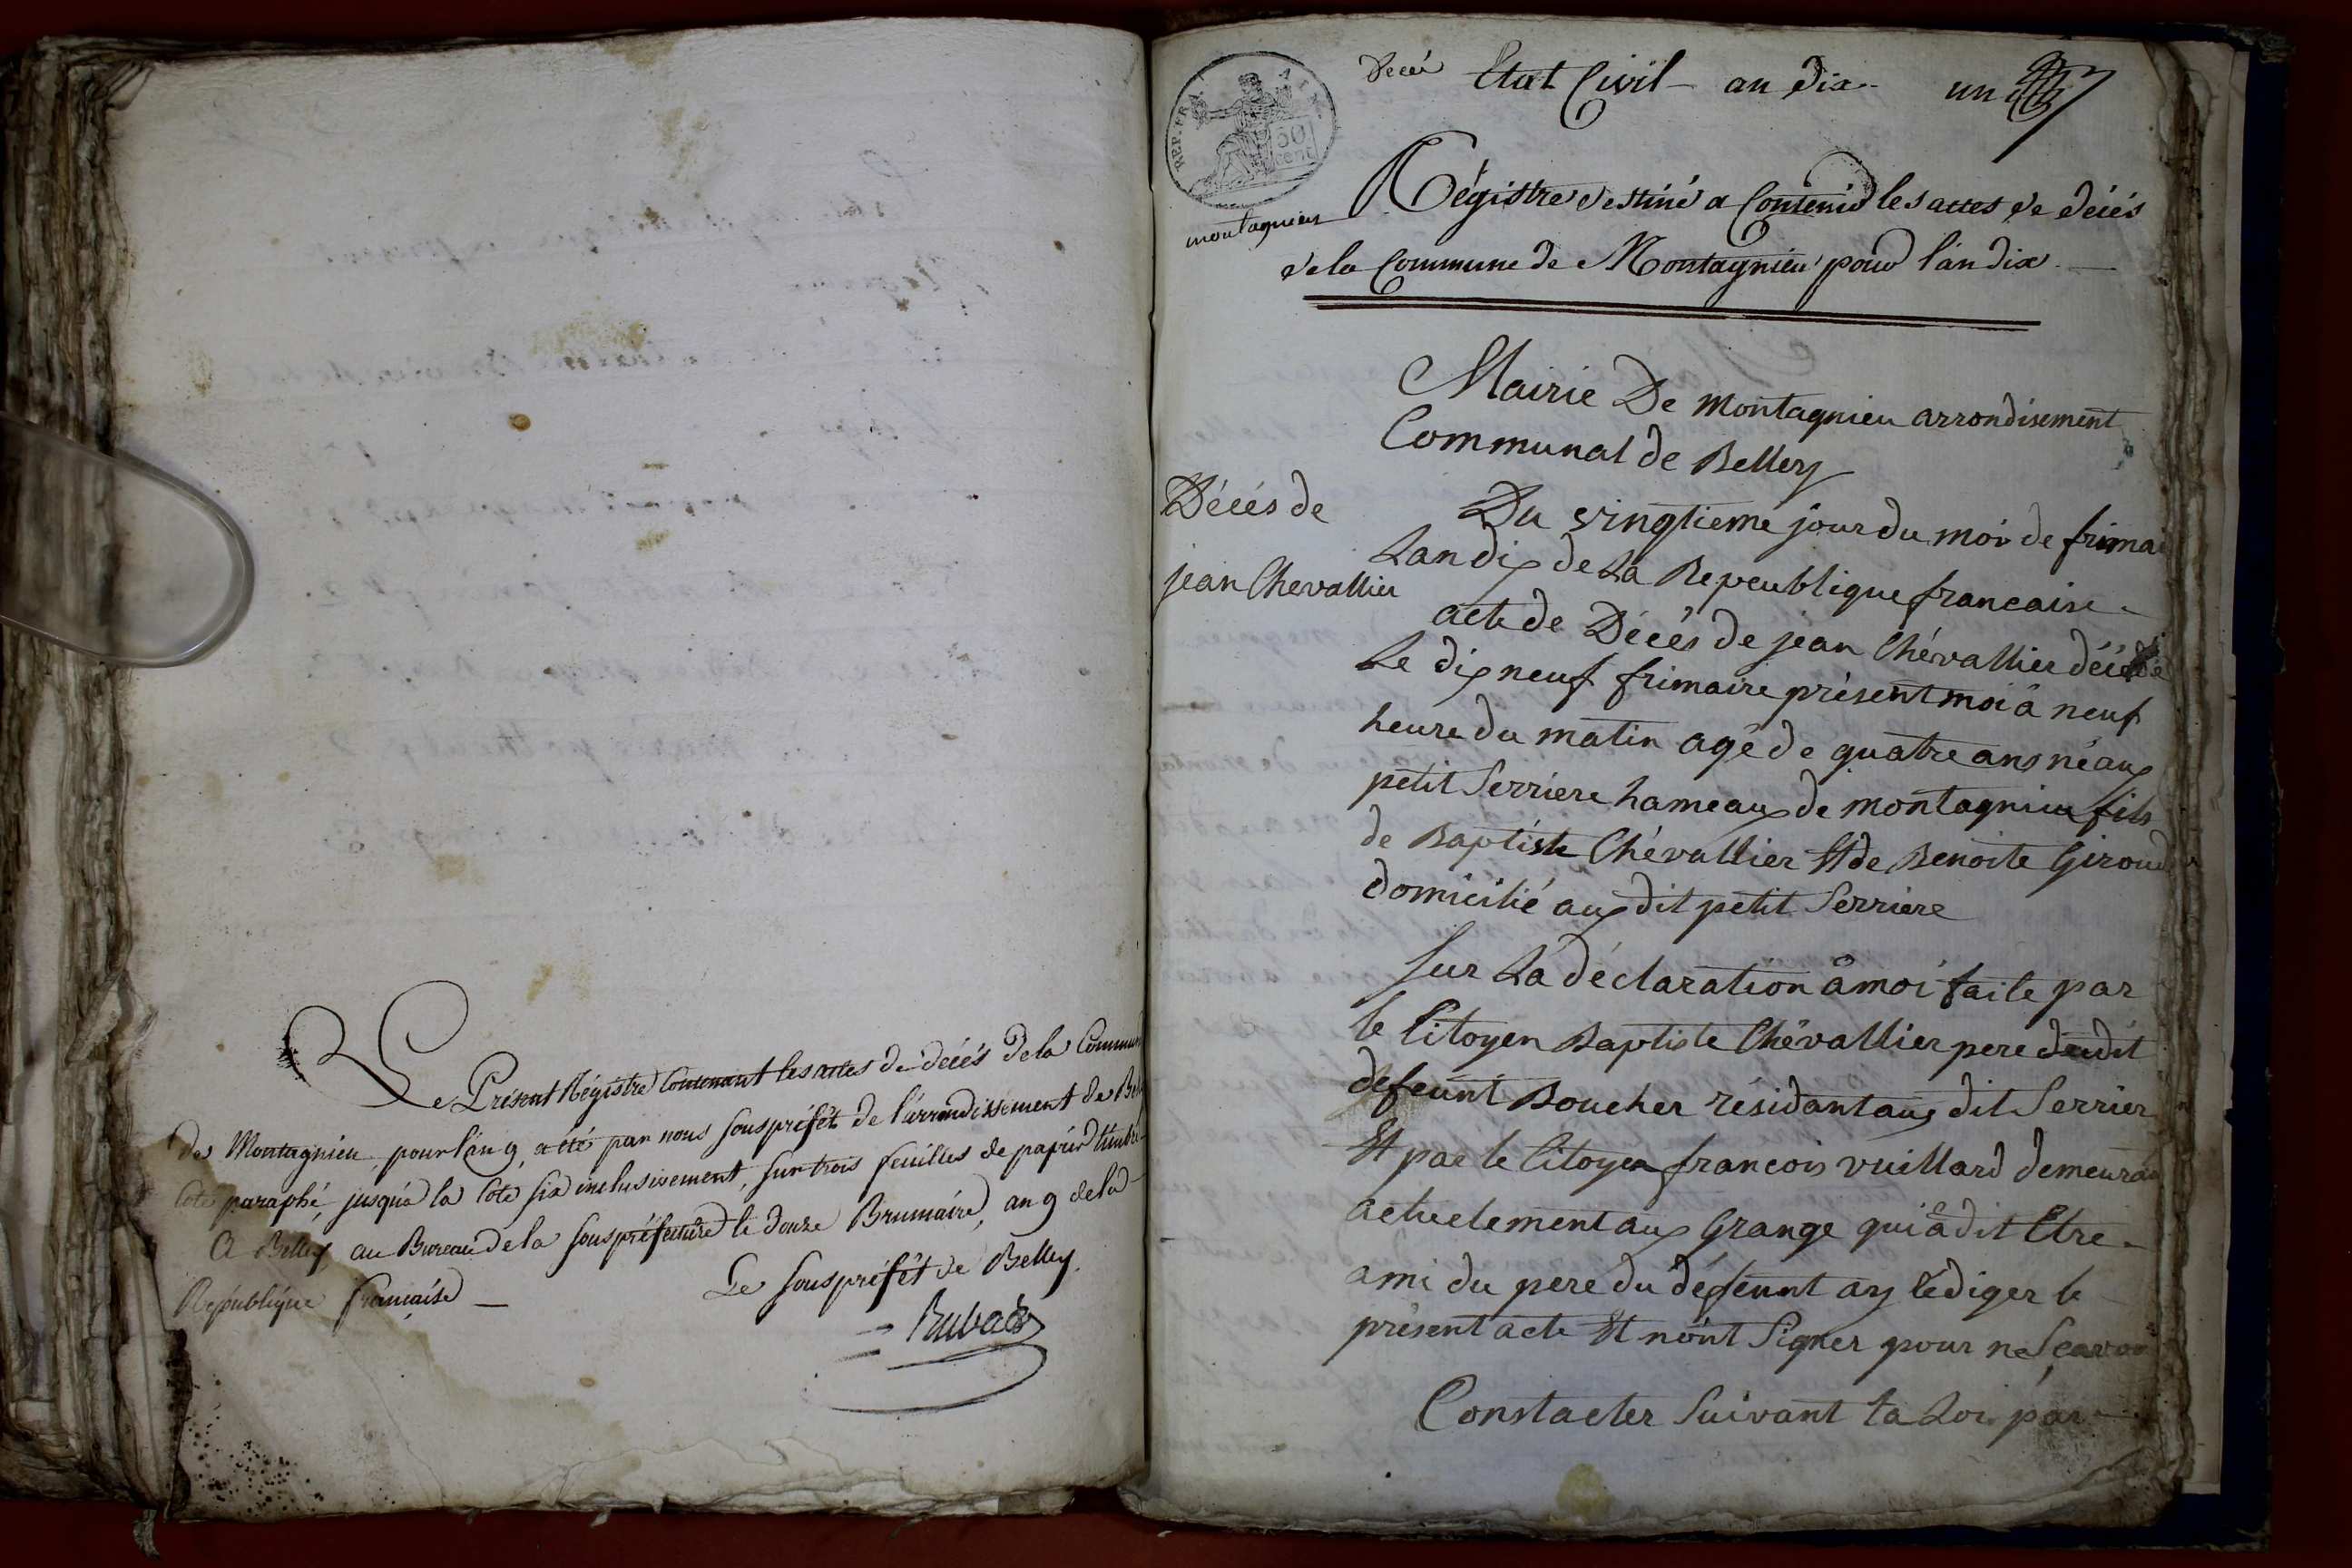 Le Présent Régistre Contenant les actes de décés de la Commune
de Montagnieu, pour l'an 9, a été par nous souspréfét de l'arrondissement de Bel
coté paraphé, jusqu'à la Cote six inclusivement, sur trois feuilles de papier timbré
A Belley au Bureau de la souspréfecture le douze Brumaire, an 9 de la
République française —
Le souspréfét de Belley.
Rubat
REP. FRA.
AIN
50
cent
Décés Etat Civil - an dix - un
montagnieu
Régistre destiné a Contenir les actes de décés
de la Commune de Montagnieu pour l'an dix —
Mairie De montagnieu arrondisement
Communal de Belley
Décés de
jean Chevallier
Du vingtieme jour du mois de frimai
Lan dix de La Republique francaise -
acte de Décés de jean Chévallier décédé
Le dix neuf frimaire présent moi à neuf
heure du matin agé de quatre ans né aux
petit Serriere hameaux de montagnieu fils
de Baptiste Chévallier Et de Benoite Giroud
domicilié aux dit petit Serriere
Sur La déclaration à moi faite par
le Citoyen Baptiste Chévallier pere dudit
defeunt Boucher résidant aux dit Serrier
Et par le Citoyen francois vuillard demeuran
actuelement aux Grange qui à dit Etre -
ami du pere du défeunt ay rédiger le
présent acte Et n'ont Signer pour ne Sçavoir
Constacter Suivant La Loi par -